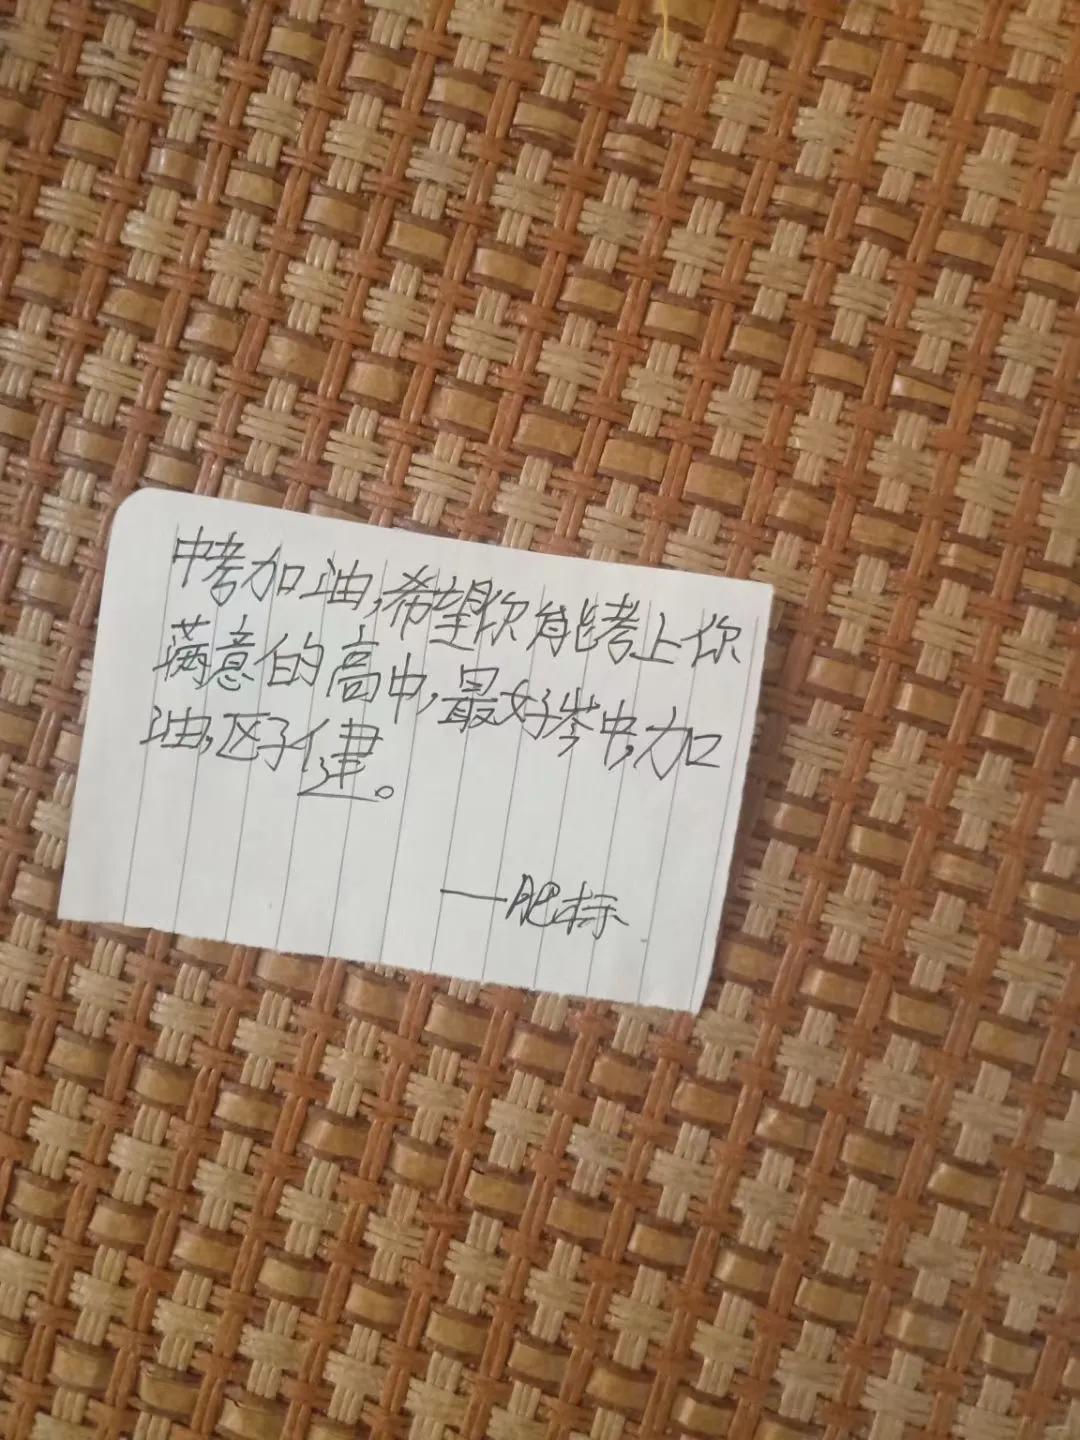 中考加油,希望你能考上你
满意的高中,最好岑中,加
油,区子健。
——肥标